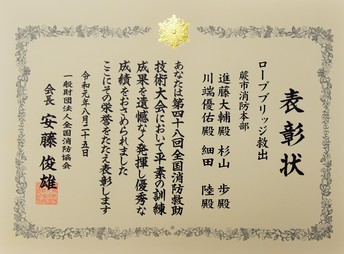 表彰状
ロープブリッジ救出
蕨市消防本部
進藤大輔殿 杉山 歩殿
川端優佑殿 細田 陸殿
あなたは第四十八回全国消防救助
技術大会において平素の訓練
成果を遺憾なく発揮し優秀な
成績をおさめられました
ここにその栄誉をたたえ表彰します
令和元年八月二十五日
一般財団法人全国消防協会
会長 安藤俊雄